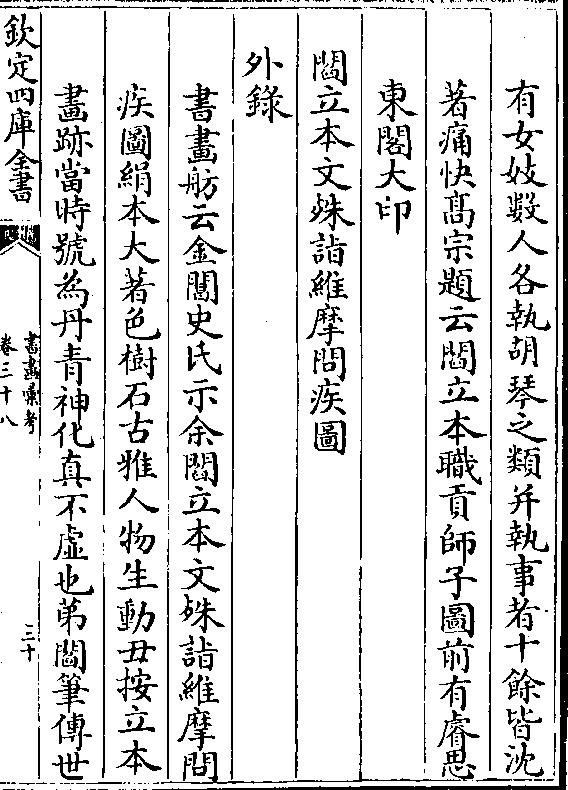 有女妓數人各執胡琴之類并執事者十餘皆沈
著痛快髙宗題云閻立本職貢師子圖前有睿思
東閣大印
閻立本文殊詣維摩問疾圖
外錄
書畫舫云金閶史氏示余閻立本文殊詣維摩問
疾圖絹本大著色樹石古雅人物生動丑按立本
畫跡當時號為丹青神化真不虛也第閻筆傳世
欽定四庫全書
書畫彚考
卷三十八
三十